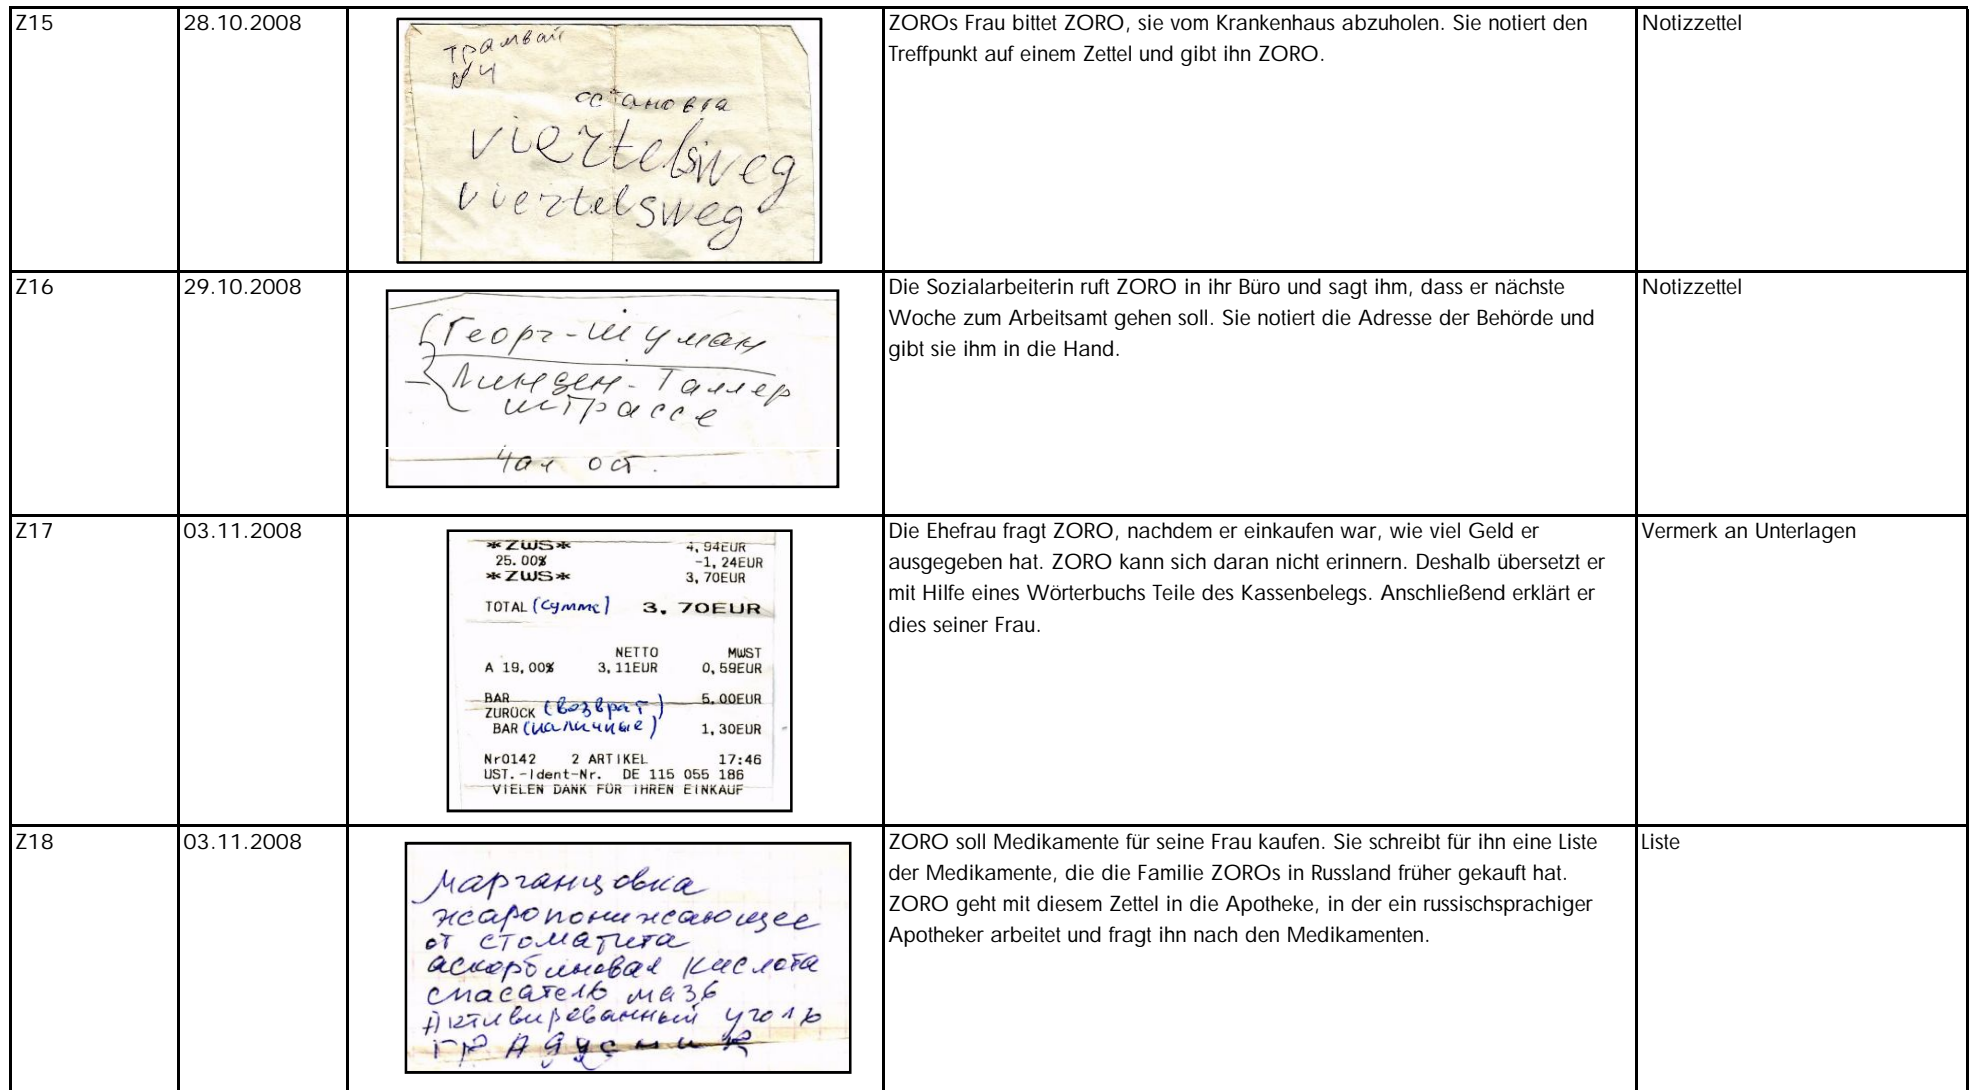 Z15
28.10.2008
трамвай
№4
остановка
viertelsweg
viertelsweg
ZOROs Frau bittet ZORO, sie vom Krankenhaus abzuholen. Sie notiert den
Treffpunkt auf einem Zettel und gibt ihn ZORO.
Notizzettel
Z16
29.10.2008
Георг-Шуман
Линден-Таллер
штрассе
4ая ост.
Die Sozialarbeiterin ruft ZORO in ihr Büro und sagt ihm, dass er nächste
Woche zum Arbeitsamt gehen soll. Sie notiert die Adresse der Behörde und
gibt sie ihm in die Hand.
Notizzettel
Z17
03.11.2008
*ZWS* 4,94EUR
25.00% -1,24EUR
*ZWS* 3,70EUR
TOTAL (сумма) 3,70EUR
NETTO MWST
A 19,00% 3,11EUR 0,59EUR
BAR 5,00EUR
ZURÜCK (возврат)
BAR (наличные) 1,30EUR
Nr0142 2 ARTIKEL 17:46
UST.-Ident-Nr. DE 115 055 186
VIELEN DANK FÜR IHREN EINKAUF
Die Ehefrau fragt ZORO, nachdem er einkaufen war, wie viel Geld er
ausgegeben hat. ZORO kann sich daran nicht erinnern. Deshalb übersetzt er
mit Hilfe eines Wörterbuchs Teile des Kassenbelegs. Anschließend erklärt er
dies seiner Frau.
Vermerk an Unterlagen
Z18
03.11.2008
марганцовка
жаропонижающее
от стоматита
аскорбиновая кислота
спасатель мазь
Активированный уголь
ГРАДУСНИК
ZORO soll Medikamente für seine Frau kaufen. Sie schreibt für ihn eine Liste
der Medikamente, die die Familie ZOROs in Russland früher gekauft hat.
ZORO geht mit diesem Zettel in die Apotheke, in der ein russischsprachiger
Apotheker arbeitet und fragt ihn nach den Medikamenten.
Liste